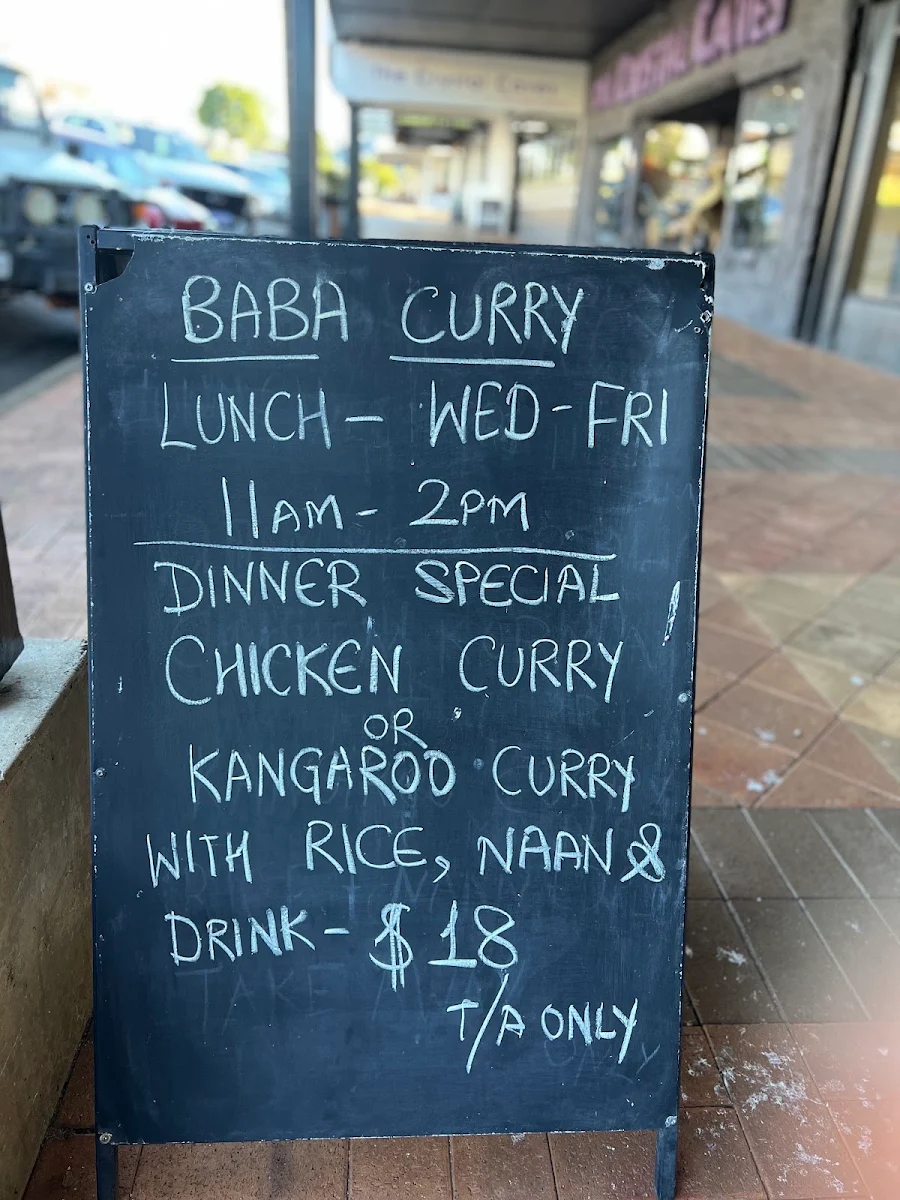 The Crystal Caves
CRYSTAL CAVES
BABA CURRY
LUNCH - WED - FRI
11AM - 2PM
DINNER SPECIAL
CHICKEN CURRY
OR
KANGAROO CURRY
WITH RICE, NAAN &
DRINK - $18
T/A ONLY